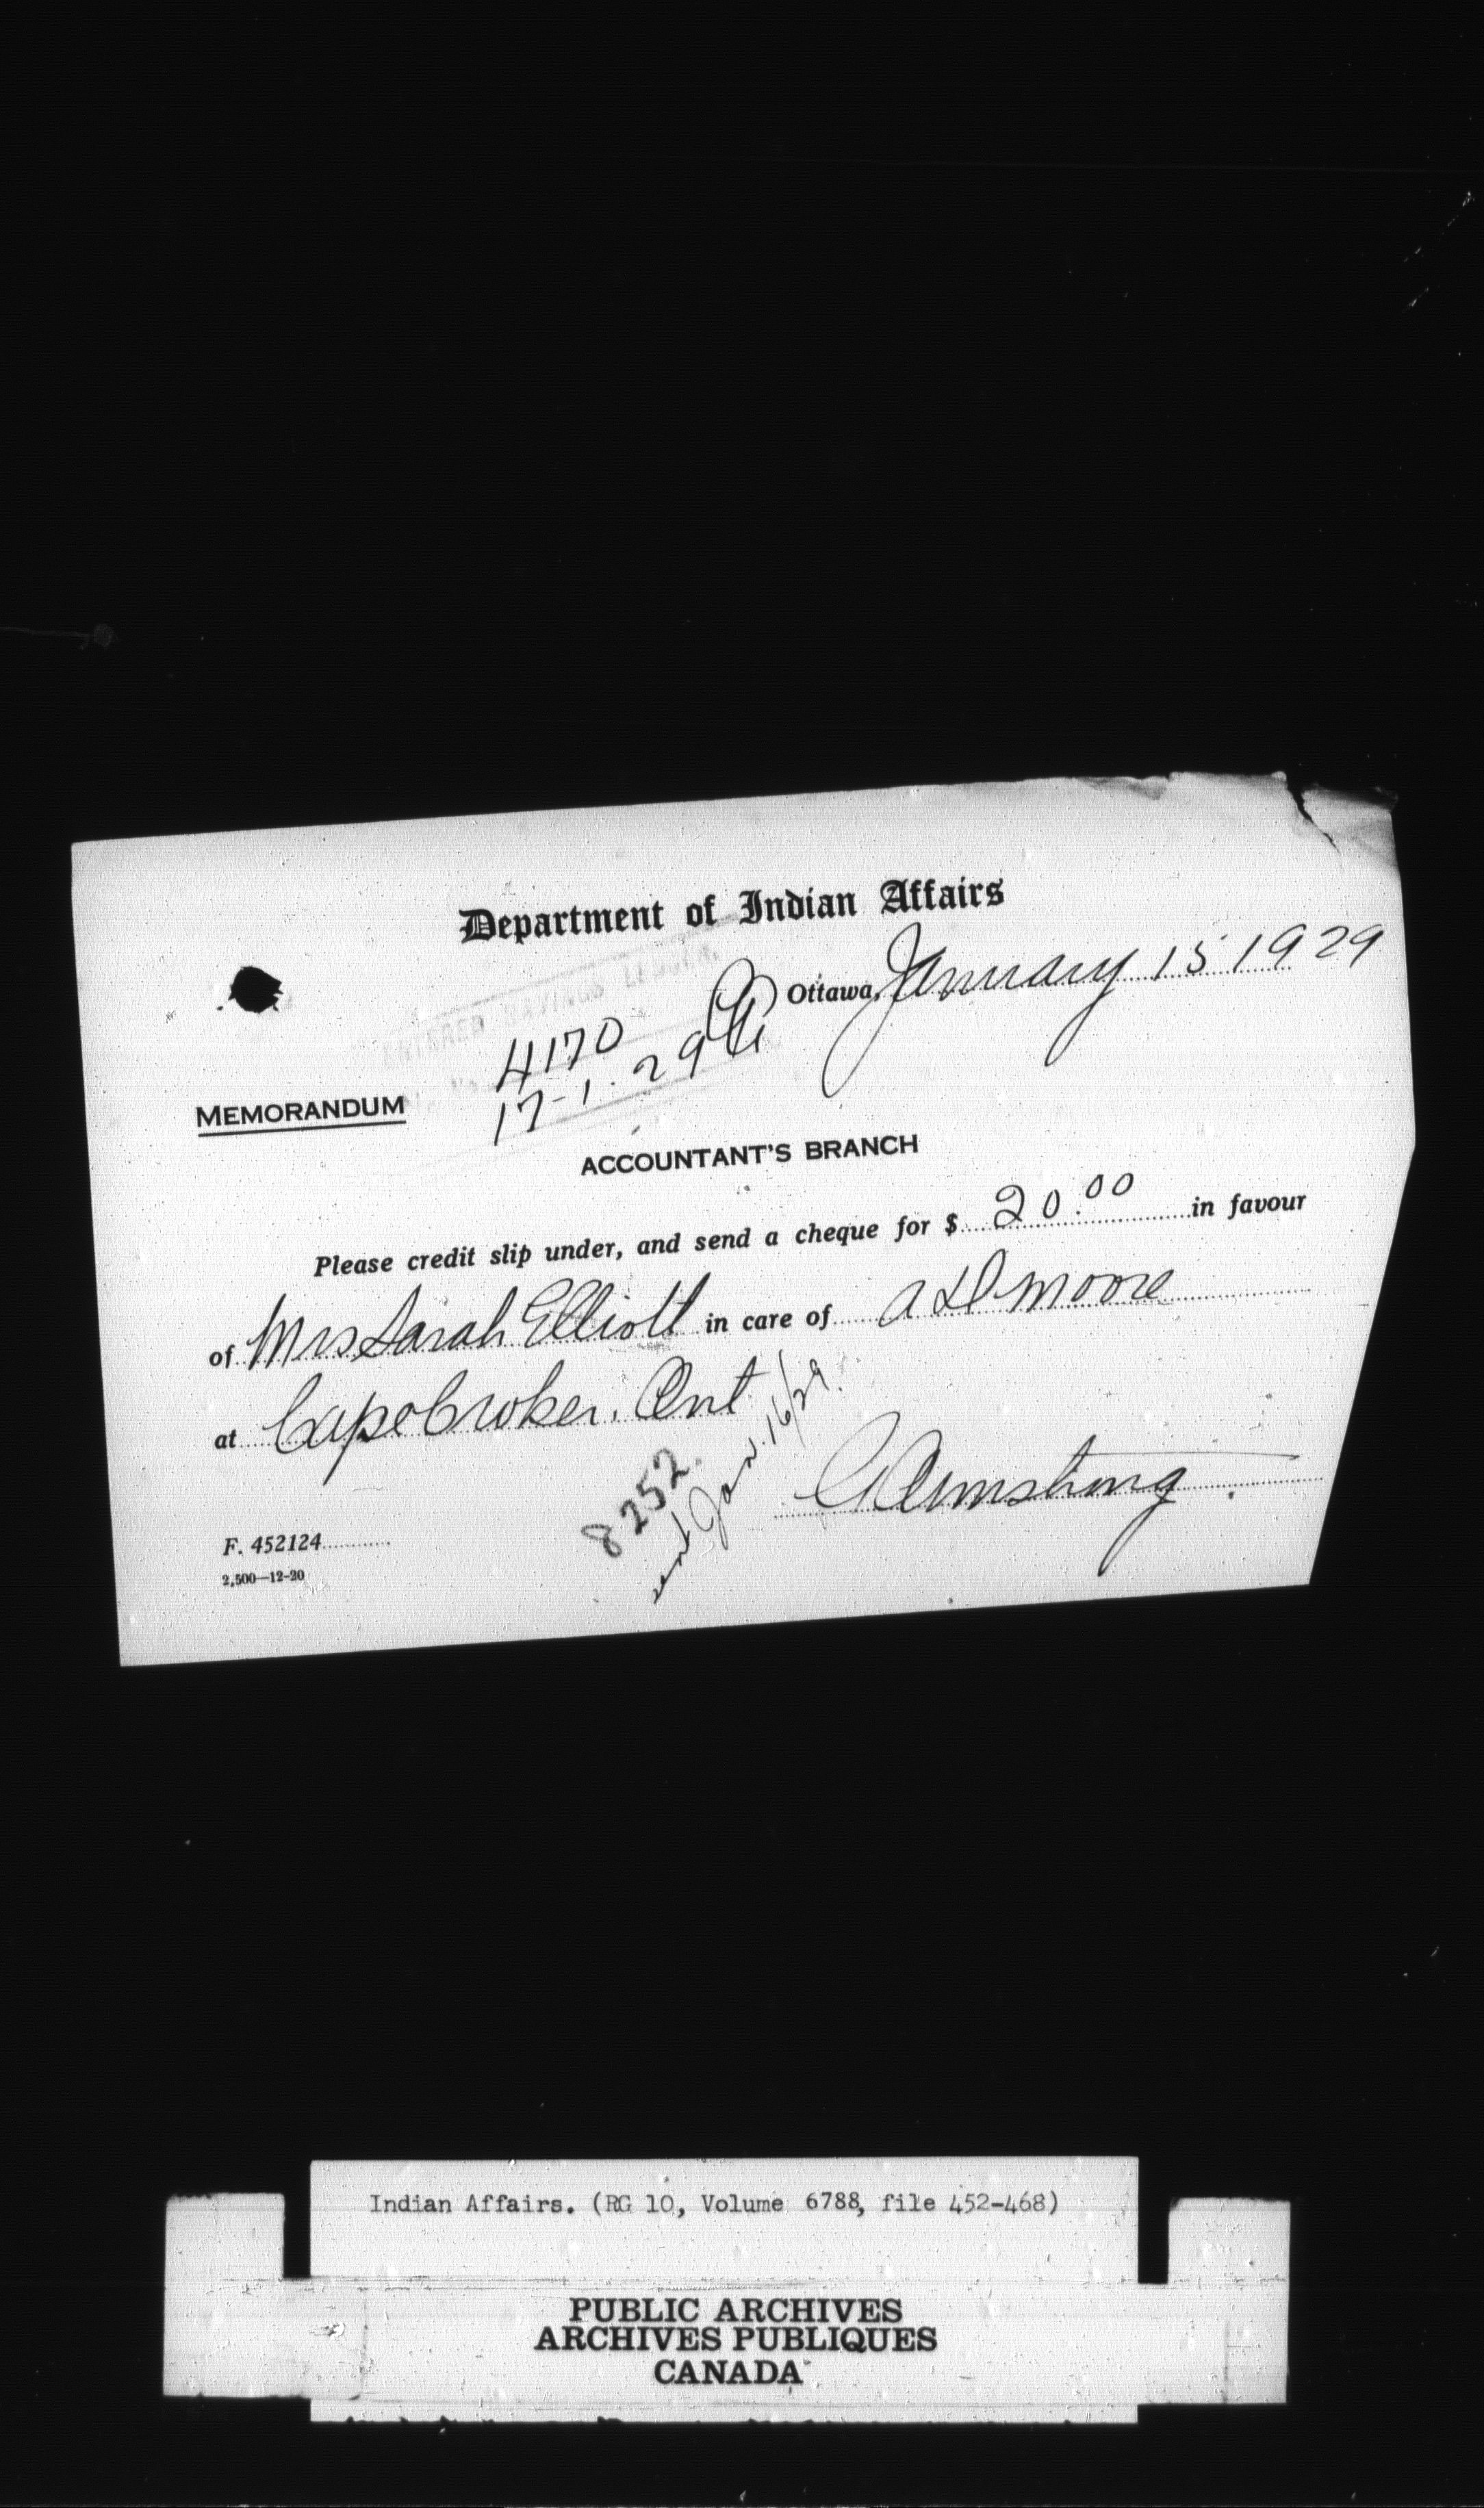 Department of Indian Affairs
Ottawa, January 15 1929
4170
17-1.29
MEMORANDUM
ACCOUNTANT'S BRANCH
Please credit slip under, and send a cheque for $ 20.00 in favour
of Mrs Sarah Elliott in care of A D Moore
at Cape Croker. Ont
8252.
sent Jan. 16/29.
G Armstrong.
F. 452124
2,500—12-20
Indian Affairs. (RG 10, Volume 6788, file 452-468)
PUBLIC ARCHIVES
ARCHIVES PUBLIQUES
CANADA